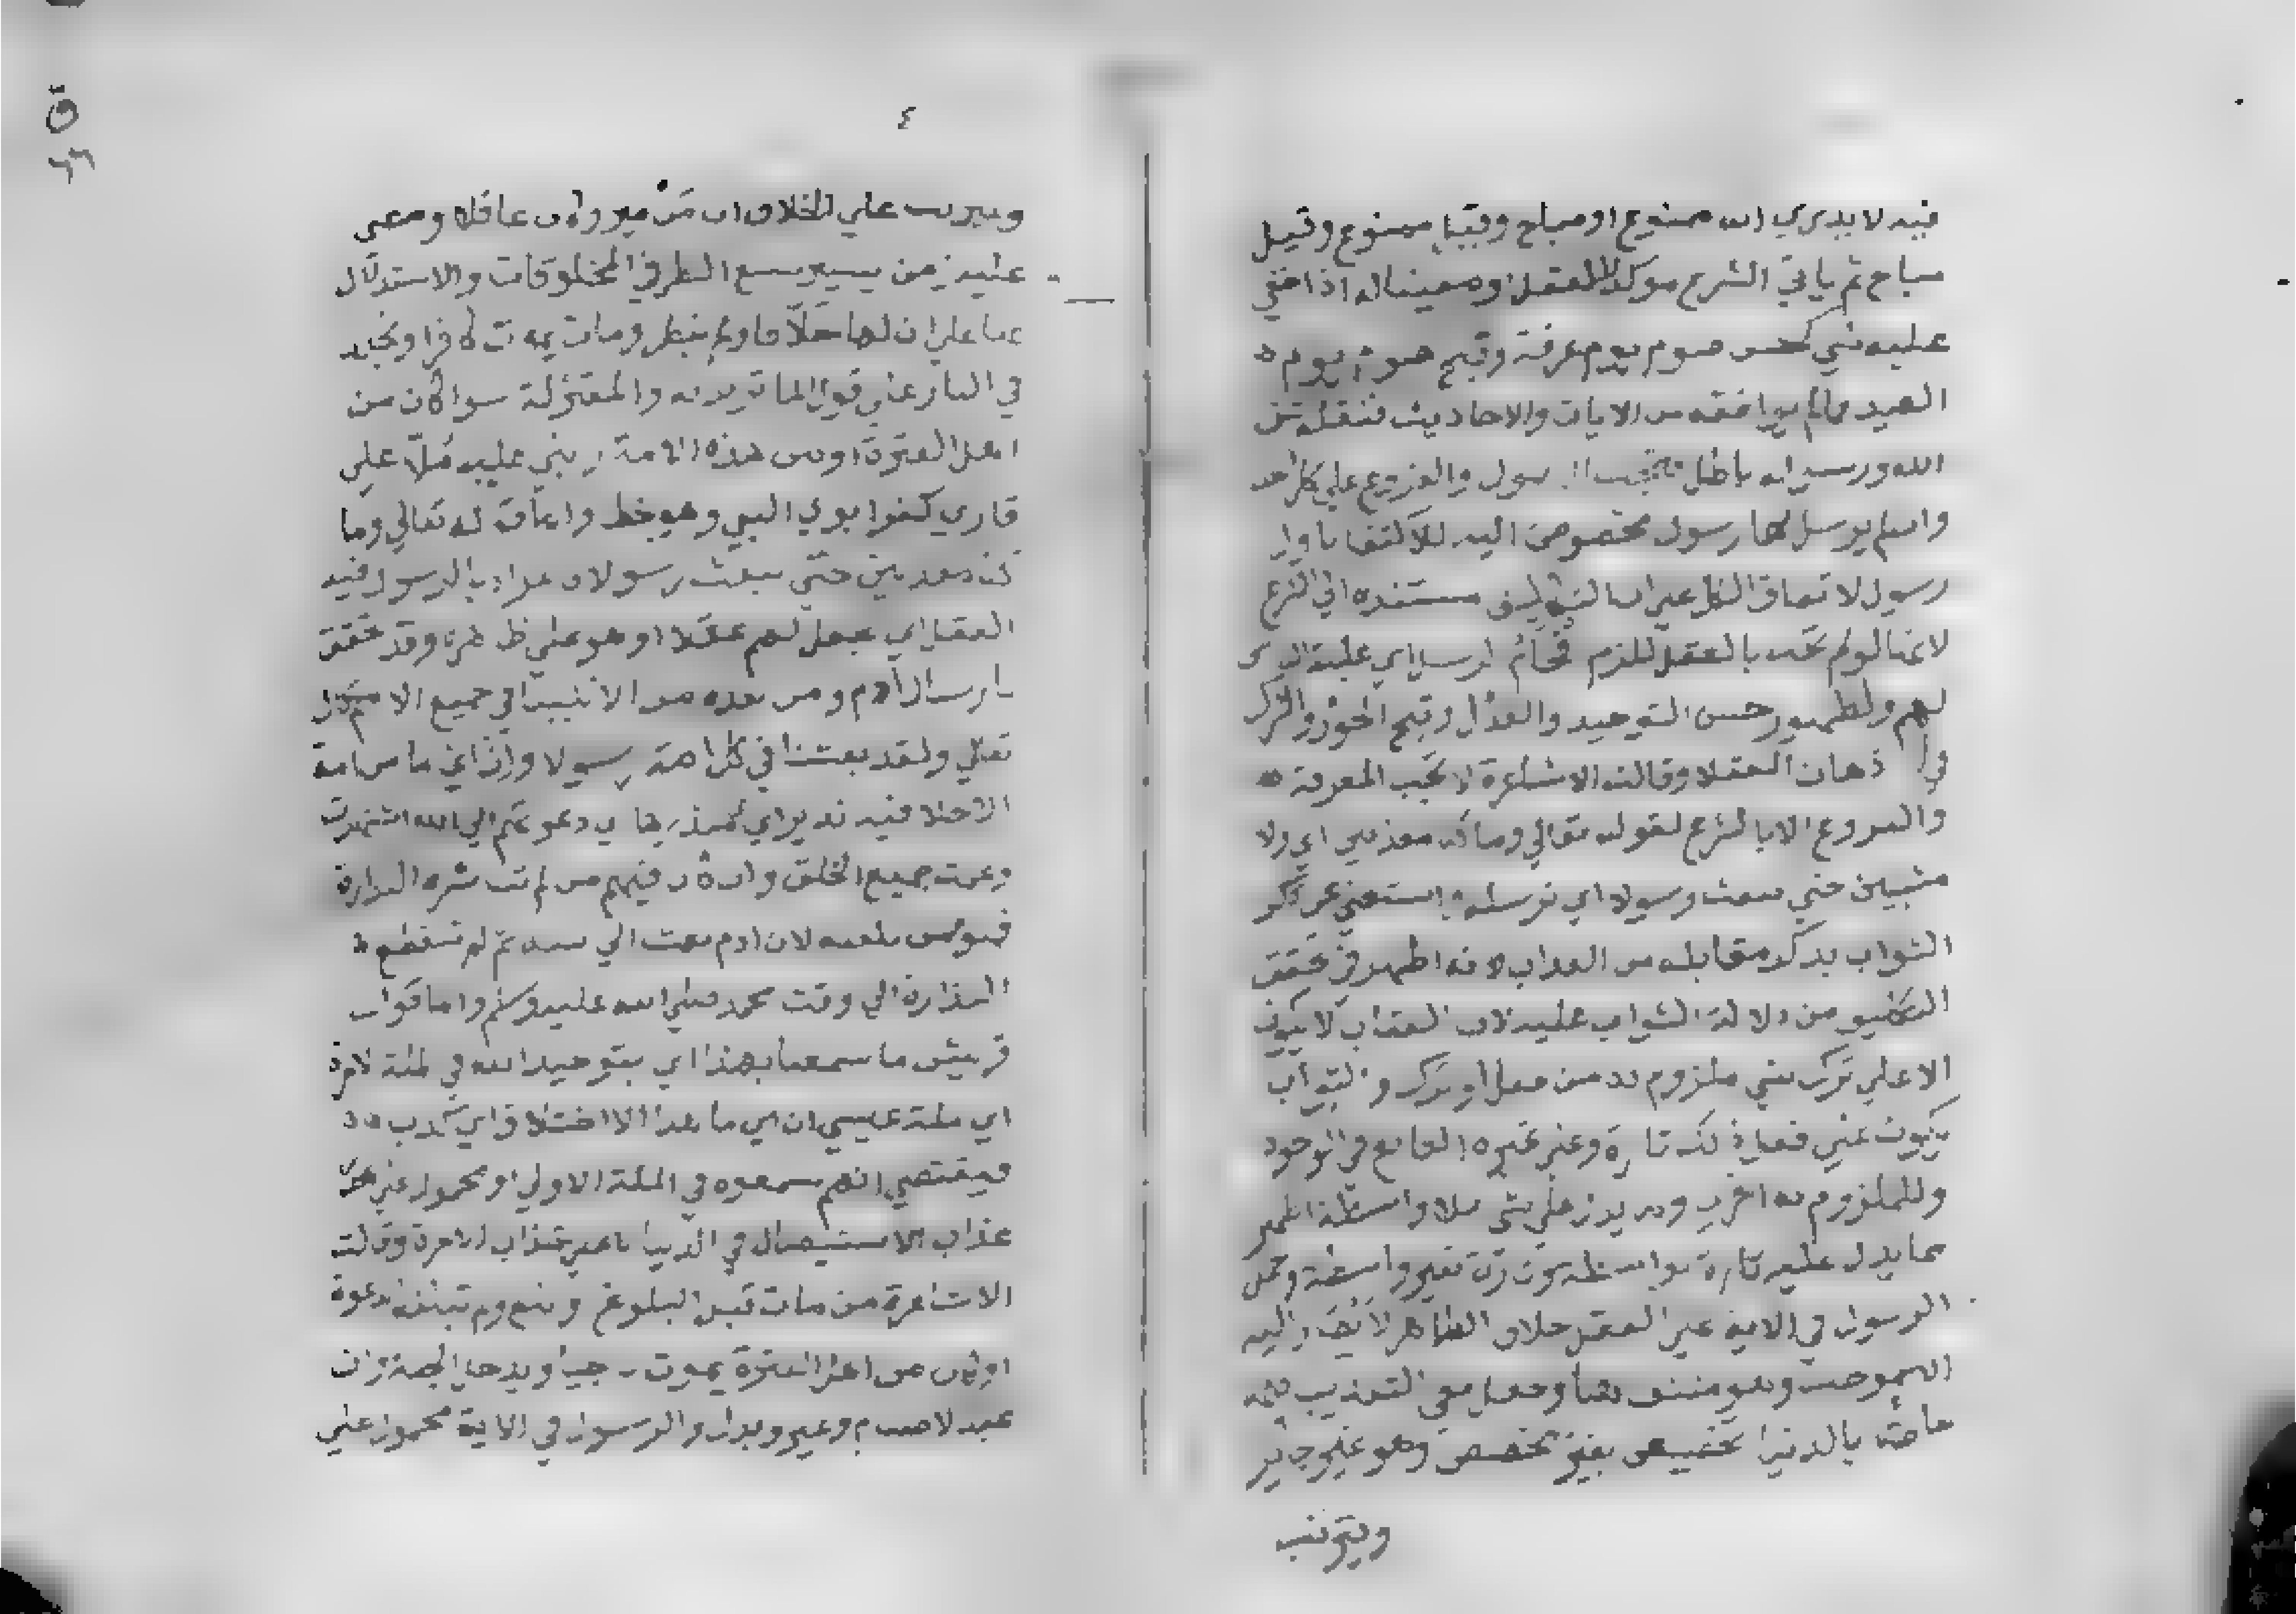 فيه لا يدري انه ممنوع او مباح وقيل ممنوع وقيل
مباح ثم ياتي الشرع موكدا للعقل او معينا له اذا خفي
عليه شي كحسن صوم يوم عرفة وقبح صوم يوم
العيد فما لم يوافقه من الايات والاحاديث فنقله عن
الله ورسوله باطل فتجب الرسول والفروع علي كل احد
وان لم يرسل لها رسول مخصوص اليه للاكتفا باول
رسول لاتفاق الكل علي ان التكليف مستنده الي الشرع
لاننا لو لم تجب بالعقل للزم الرسل اي غلبة
لهم ولظهور حسن التوحيد والعدل وقبح الجور والشرك
في اذهان العقلا وقالت الاشاعرة لا تجب المعرفة
والفروع الا بالشرع لقوله تعالي وما كنا معذبين اي ولا
مثيبين حتي نبعث رسولا اي نرسله استغني عن ذكر
الثواب بذكر مقابله من العذاب لانه اظهر في تحقق
التكليف من دلالة الثواب عليه لان العذاب لا يكون
الا علي ترك شي ملزوم به من فعل او ترك والثواب
يكون علي فعل ذلك تارة وعلي غيره الواقع في الوجود
وللملزوم به اخري وما يدل علي شي بلا واسطة اظهر
مما يدل عليه تارة بواسطة وتارة بغير واسطة وحمل
الرسول في الاية علي العقل خلاف الظاهر لا يصار اليه
الا بموجب وهو منتف هنا وجعل معني التعذيب فيها
خاصا بالدنيا تخصيص بغير مخصص وهو غير جايز
ويترتب
٤
ويترتب علي الخلاف ان من ميز وكان عاقلا ومضي
عليه زمن يسير يسع النظر في المخلوقات والاستدلال
بها علي ان لها خلاقا ولم ينظر ومات يموت كافرا ويخلد
في النار علي قول الماتريدية والمعتزلة سوا كان من
اهل الفترة او من هذه الامة وبني عليه ملا علي
قاري كفر ابوي النبي وهو خطا واما قوله تعالي وما
كنا معذبين حتي نبعث رسولا مراد بالرسول فيه
العقل اي نجعل لهم عقلا او هو علي ظاهره وقد تحقق
بارسال ادم ومن بعده من الانبيا في جميع الامم قال
تعالي ولقد بعثنا في كل امة رسولا وان اي ما من امة
الا خلا فيها نذير اي منذر يدعوهم الي الله اشتهرت
وعمت جميع الخلق وان كان فيهم من لم تباشره النذارة
فهو ممن بلغته لان ادم بعث الي بنيه ثم لم تنقطع
النذارة الي وقت محمد صلي الله عليه وسلم واما قول
قريش ما سمعنا بهذا اي بتوحيد الله في الملة الاخرة
اي ملة عيسي ان اي ما هذا الا اختلاق اي كذب
فيقتضي انهم سمعوه في الملة الاولي او محمول علي
عذاب الاستيصال في الدنيا لا علي عذاب الاخرة وقالت
الاشاعرة من مات قبل البلوغ ومن لم تبلغه دعوة
او كان من اهل الفترة يموت ناجيا ويدخل الجنة وان
عبد الاصنام وغير وبدل والرسول في الاية محمول علي
ق
٦٦